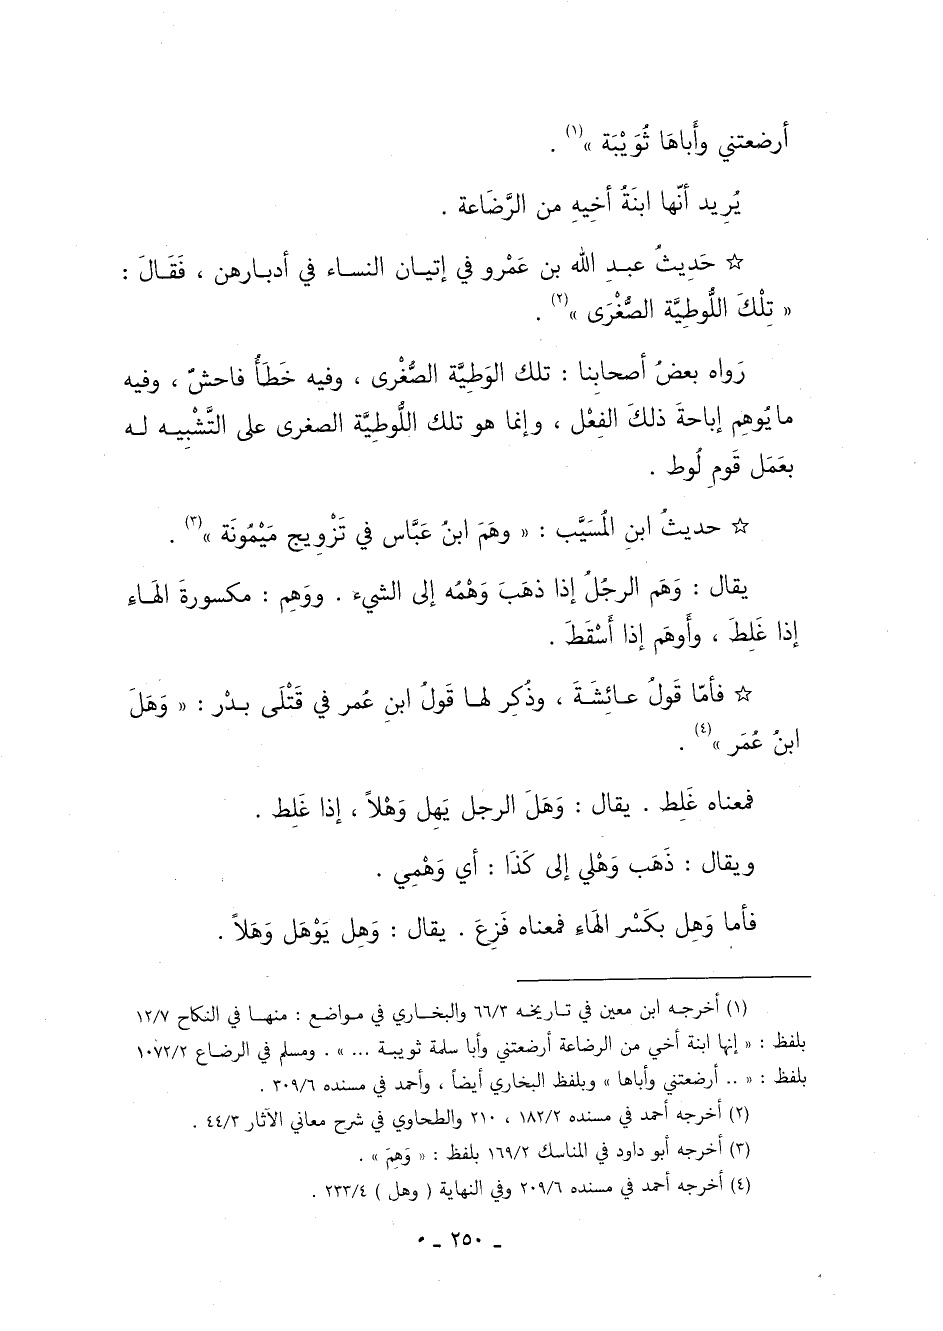 أرضعتني وأَباهَا ثُوَيْبَة »(١) .
يُرِيد أنّها ابنَةُ أخِيهِ من الرَّضَاعة .
☆ حَدِيثُ عبدِ الله بن عَمْرو في إتيان النساء في أدبارهن ، فَقَالَ :
« تِلْكَ اللُّوطِيَّة الصُّغْرَى »(٢) .
رَواه بعضُ أصحابنا : تلك الوَطِيَّة الصُّغْرى ، وفيه خَطَأُ فاحشٌ ، وفيه
ما يُوهِم إباحةَ ذلكَ الفِعْل ، وإنما هو تلك اللُّوطِيَّة الصغرى على التَّشْبِيه له
بعَمَل قَومِ لُوط .
☆ حديثُ ابنِ المُسَيَّب : « وهَمَ ابنُ عَبَّاس في تَزْوِيج مَيْمُونَة »(٣) .
يقال : وَهَم الرجلُ إذا ذهَبَ وَهْمُه إلى الشيء . ووَهِم : مكسورةَ الهَاء
إذا غَلِطَ ، وأَوهَم إذا أَسْقَطَ .
☆ فأمّا قَولُ عائِشَةَ ، وذُكِر لها قَولُ ابنِ عُمر في قَتْلَى بدْر : « وَهَلَ
ابنُ عُمَر »(٤) .
فمعناه غَلِط . يقال : وَهَلَ الرجل يَهِل وَهْلاً ، إذا غَلِط .
ويقال : ذَهَب وَهْلي إلى كَذَا : أي وَهْمِي .
فأما وَهِل بكَسْرِ الهَاء فمعناه فَزِعَ . يقال : وَهِل يَوْهَل وَهَلاً .
(١) أخرجه ابن معين في تاريخه ٦٦/٣ والبخاري في مواضع : منها في النكاح ١٢/٧
بلفظ : « إنها ابنة أخي من الرضاعة أرضعتني وأبا سلمة ثويبة ... » . ومسلم في الرضاع ١٠٧٢/٢
بلفظ : « .. أرضعتني وأباها » وبلفظ البخاري أيضاً ، وأحمد في مسنده ٣٠٩/٦ .
(٢) أخرجه أحمد في مسنده ١٨٢/٢ ، ٢١٠ والطحاوي في شرح معاني الآثار ٤٤/٣ .
(٣) أخرجه أبو داود في المناسك ١٦٩/٢ بلفظ : « وَهِمَ » .
(٤) أخرجه أحمد في مسنده ٢٠٩/٦ وفي النهاية ( وهل ) ٢٣٣/٤ .
ـ ٢٥٠ ـ